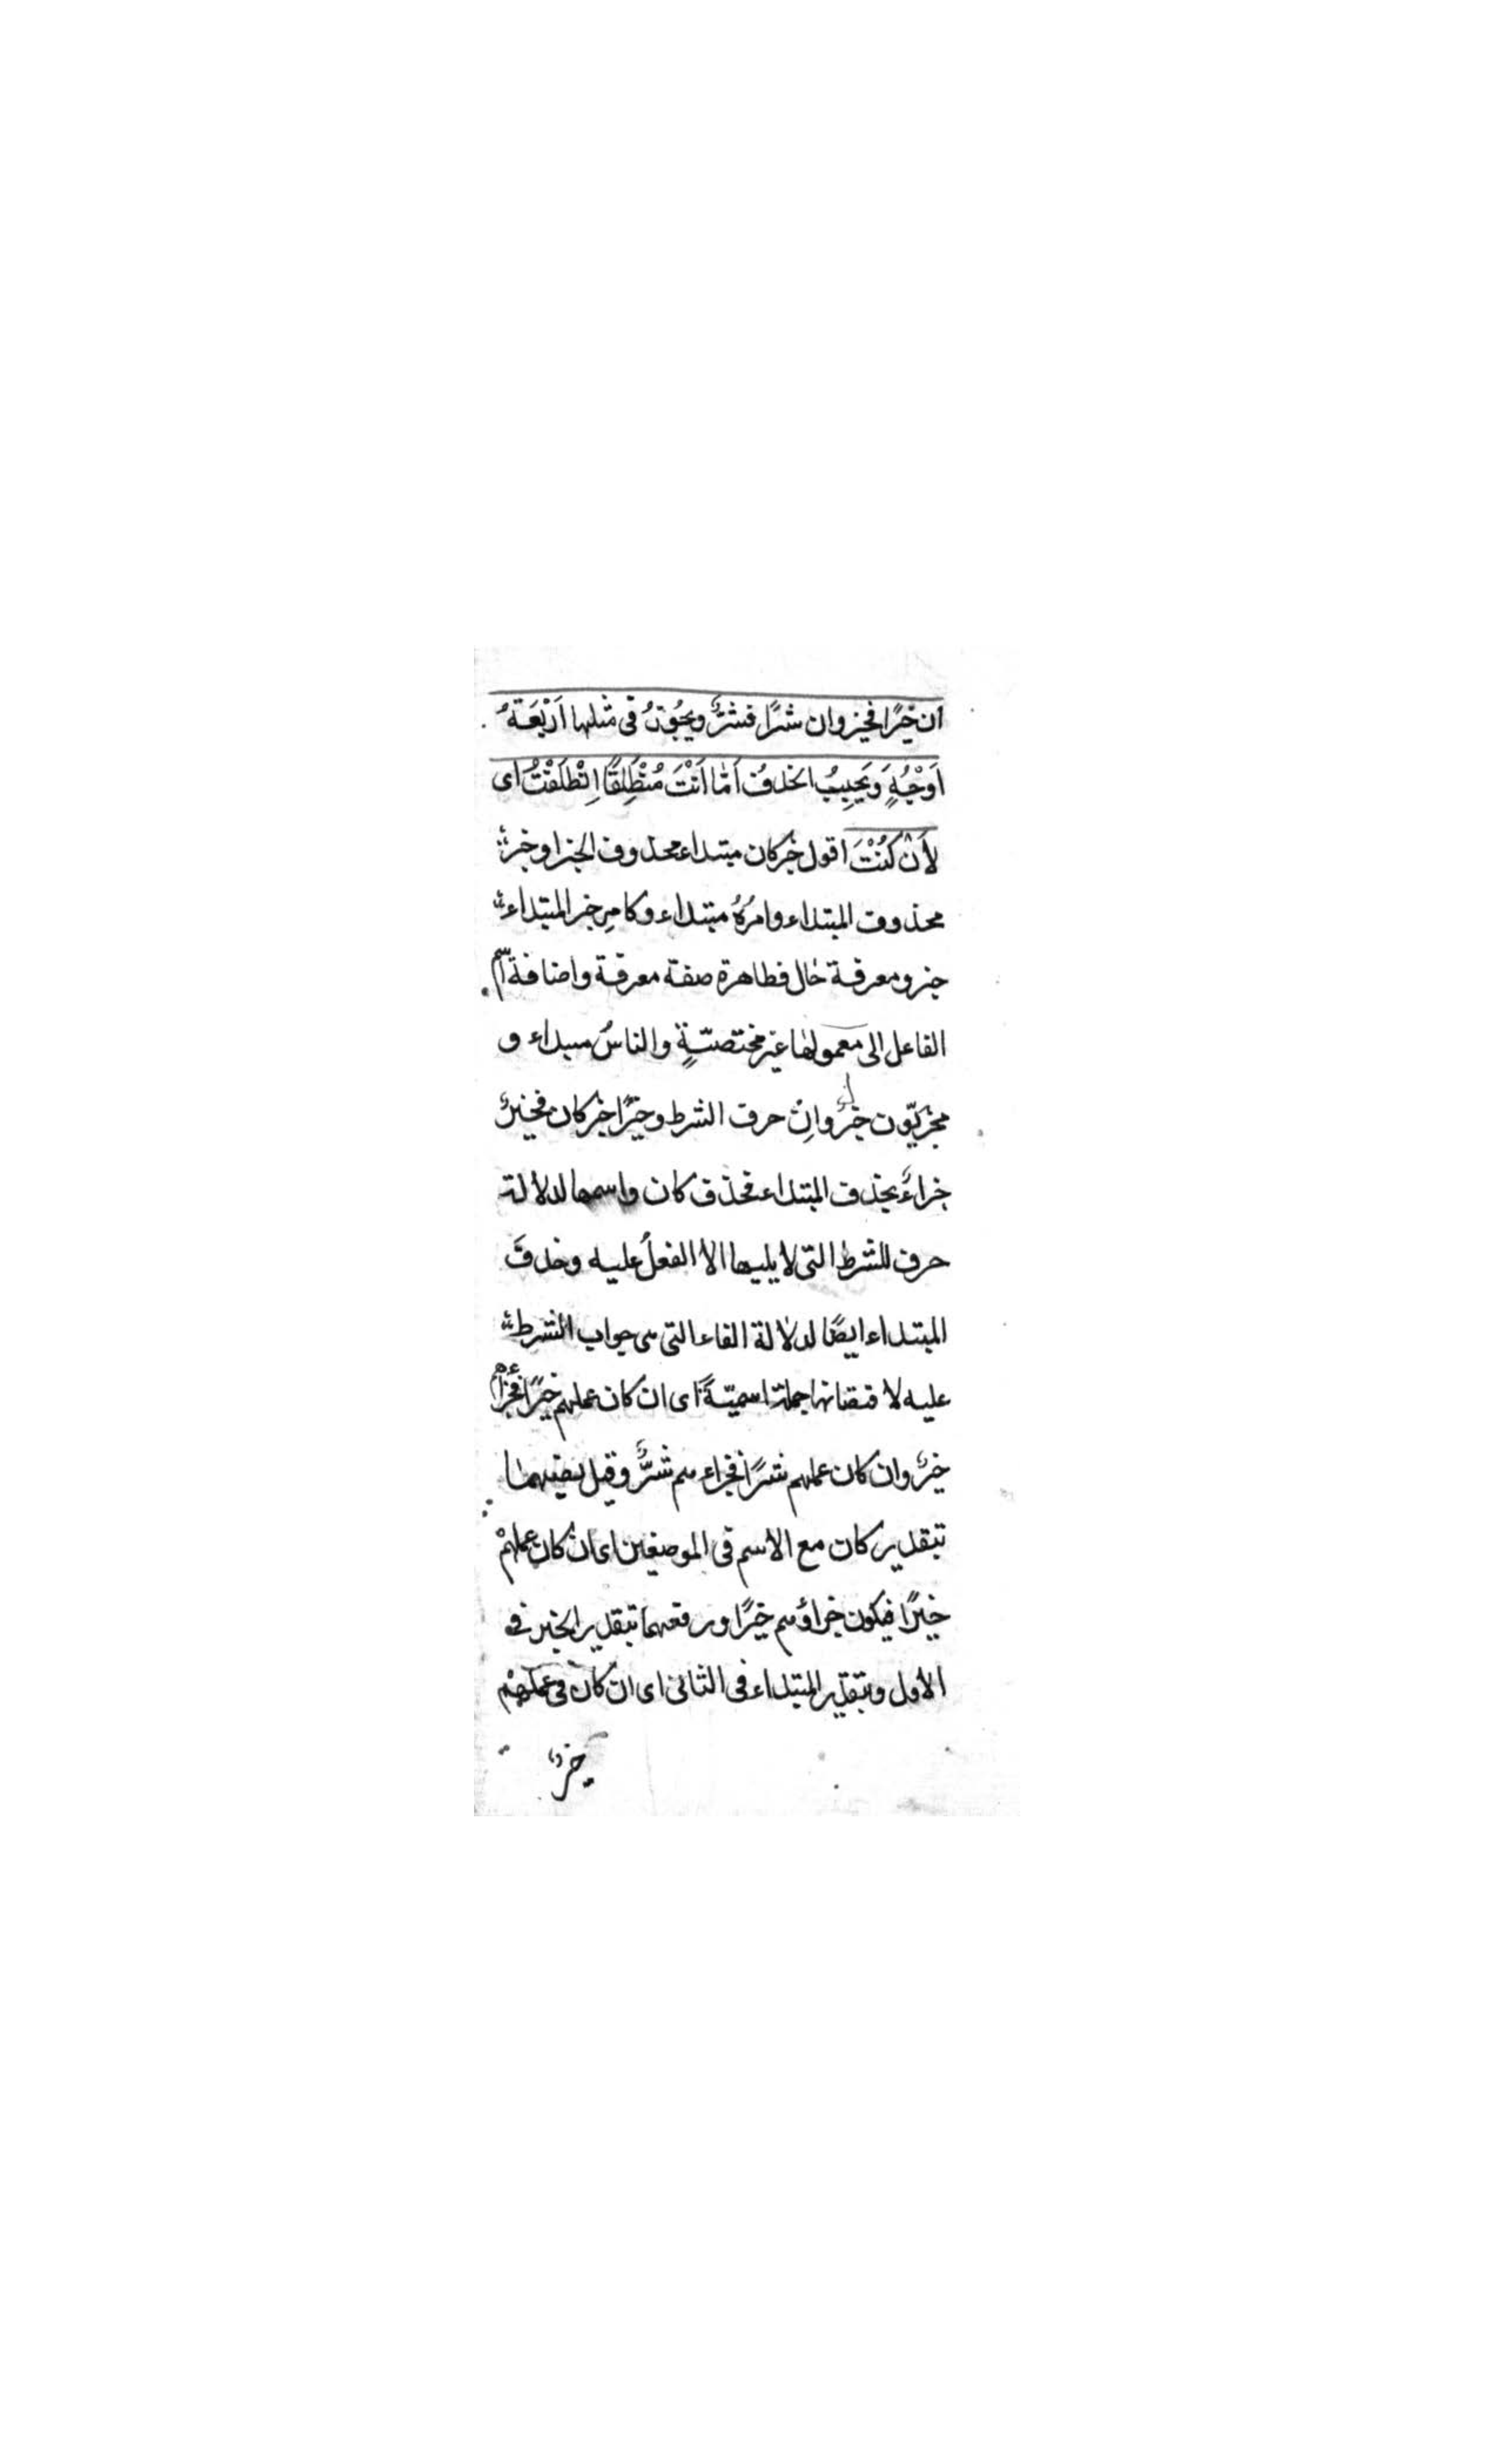 ان خَيْرًا فخير وان شرًا فشرٌّ ويَجُوزُ فى مثلها اَرْبَعَةُ
اَوْجُهٍ وَيَجِبُ الحذفُ اَمّا اَنْتَ مُنْطَلِقًا اِنْطَلَقْتُ اى
لِاَنْ كُنْتَ اقول خبر كان مبتداء محذوف الخبر او خبرٌ
محذوف المبتداء وامرُهُ مبتداء وكامرِ خبر المبتداء
خبر ومعرفة حال فظاهرة صفة معرفة واضافة اسم
الفاعل الى معمولها غير مختصّةٍ والناسُ مبداء و
مجزيّون خبرٌ واِنْ حرف الشرط وخيرًا خبر كان فخيرٌ
جزاءٌ بحذف المبتداء فحذف كان واسمها لدلالة
حرف للشرط التى لا يليها الا الفعلُ عليه وحذفَ
المبتداء ايضًا لدلالة الفاء التى هى جواب الشرط
عليه لاقتضائها جملة اسميّةً اى ان كان عملهم خيرًا فجزاؤهم
خيرٌ وان كان عملهم شرًا فجزاءهم شرٌّ وقيل نصبهما
بتقدير كان مع الاسم فى الموضعين اى ان كان عملهمْ
خيرًا فيكون جزاؤهم خيرًا ورفعهما بتقدير الخبر فى
الاول وبتقدير المبتداء فى الثانى اى ان كان فى عملهمْ
خيرٌ